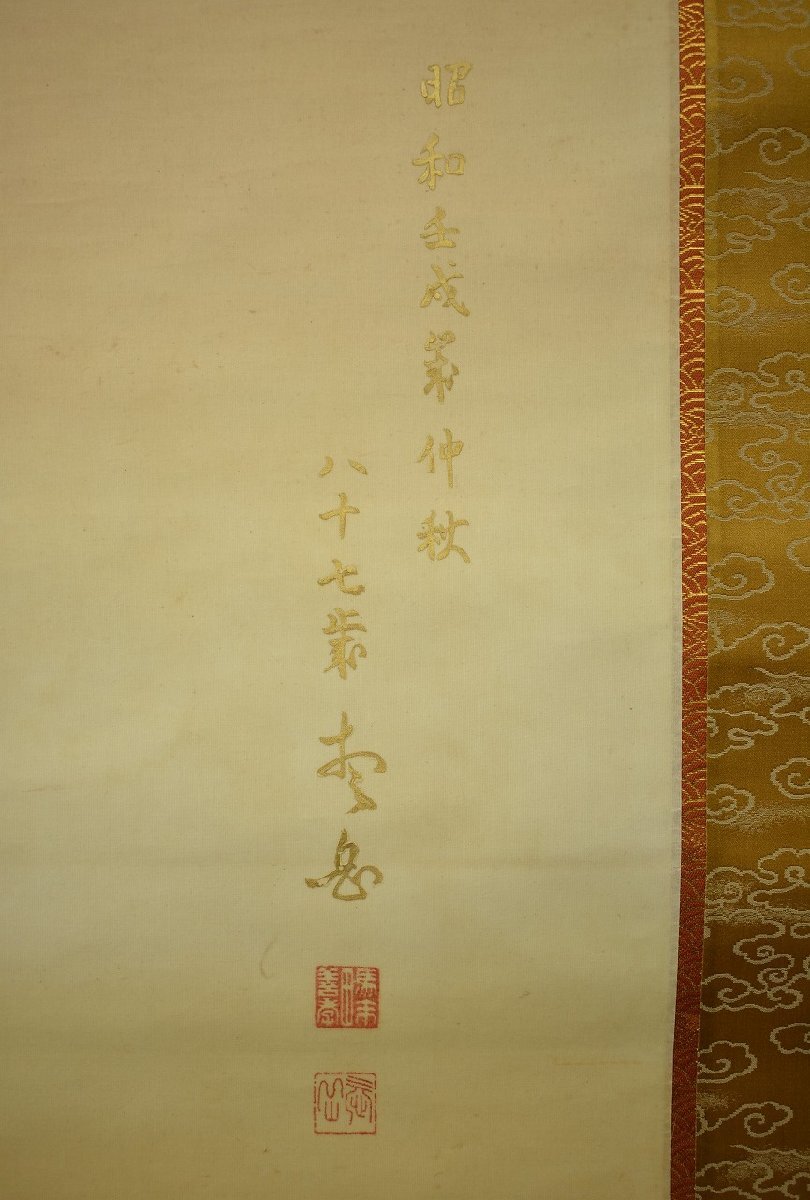 昭和壬戌歳仲秋
八十七歳 岳